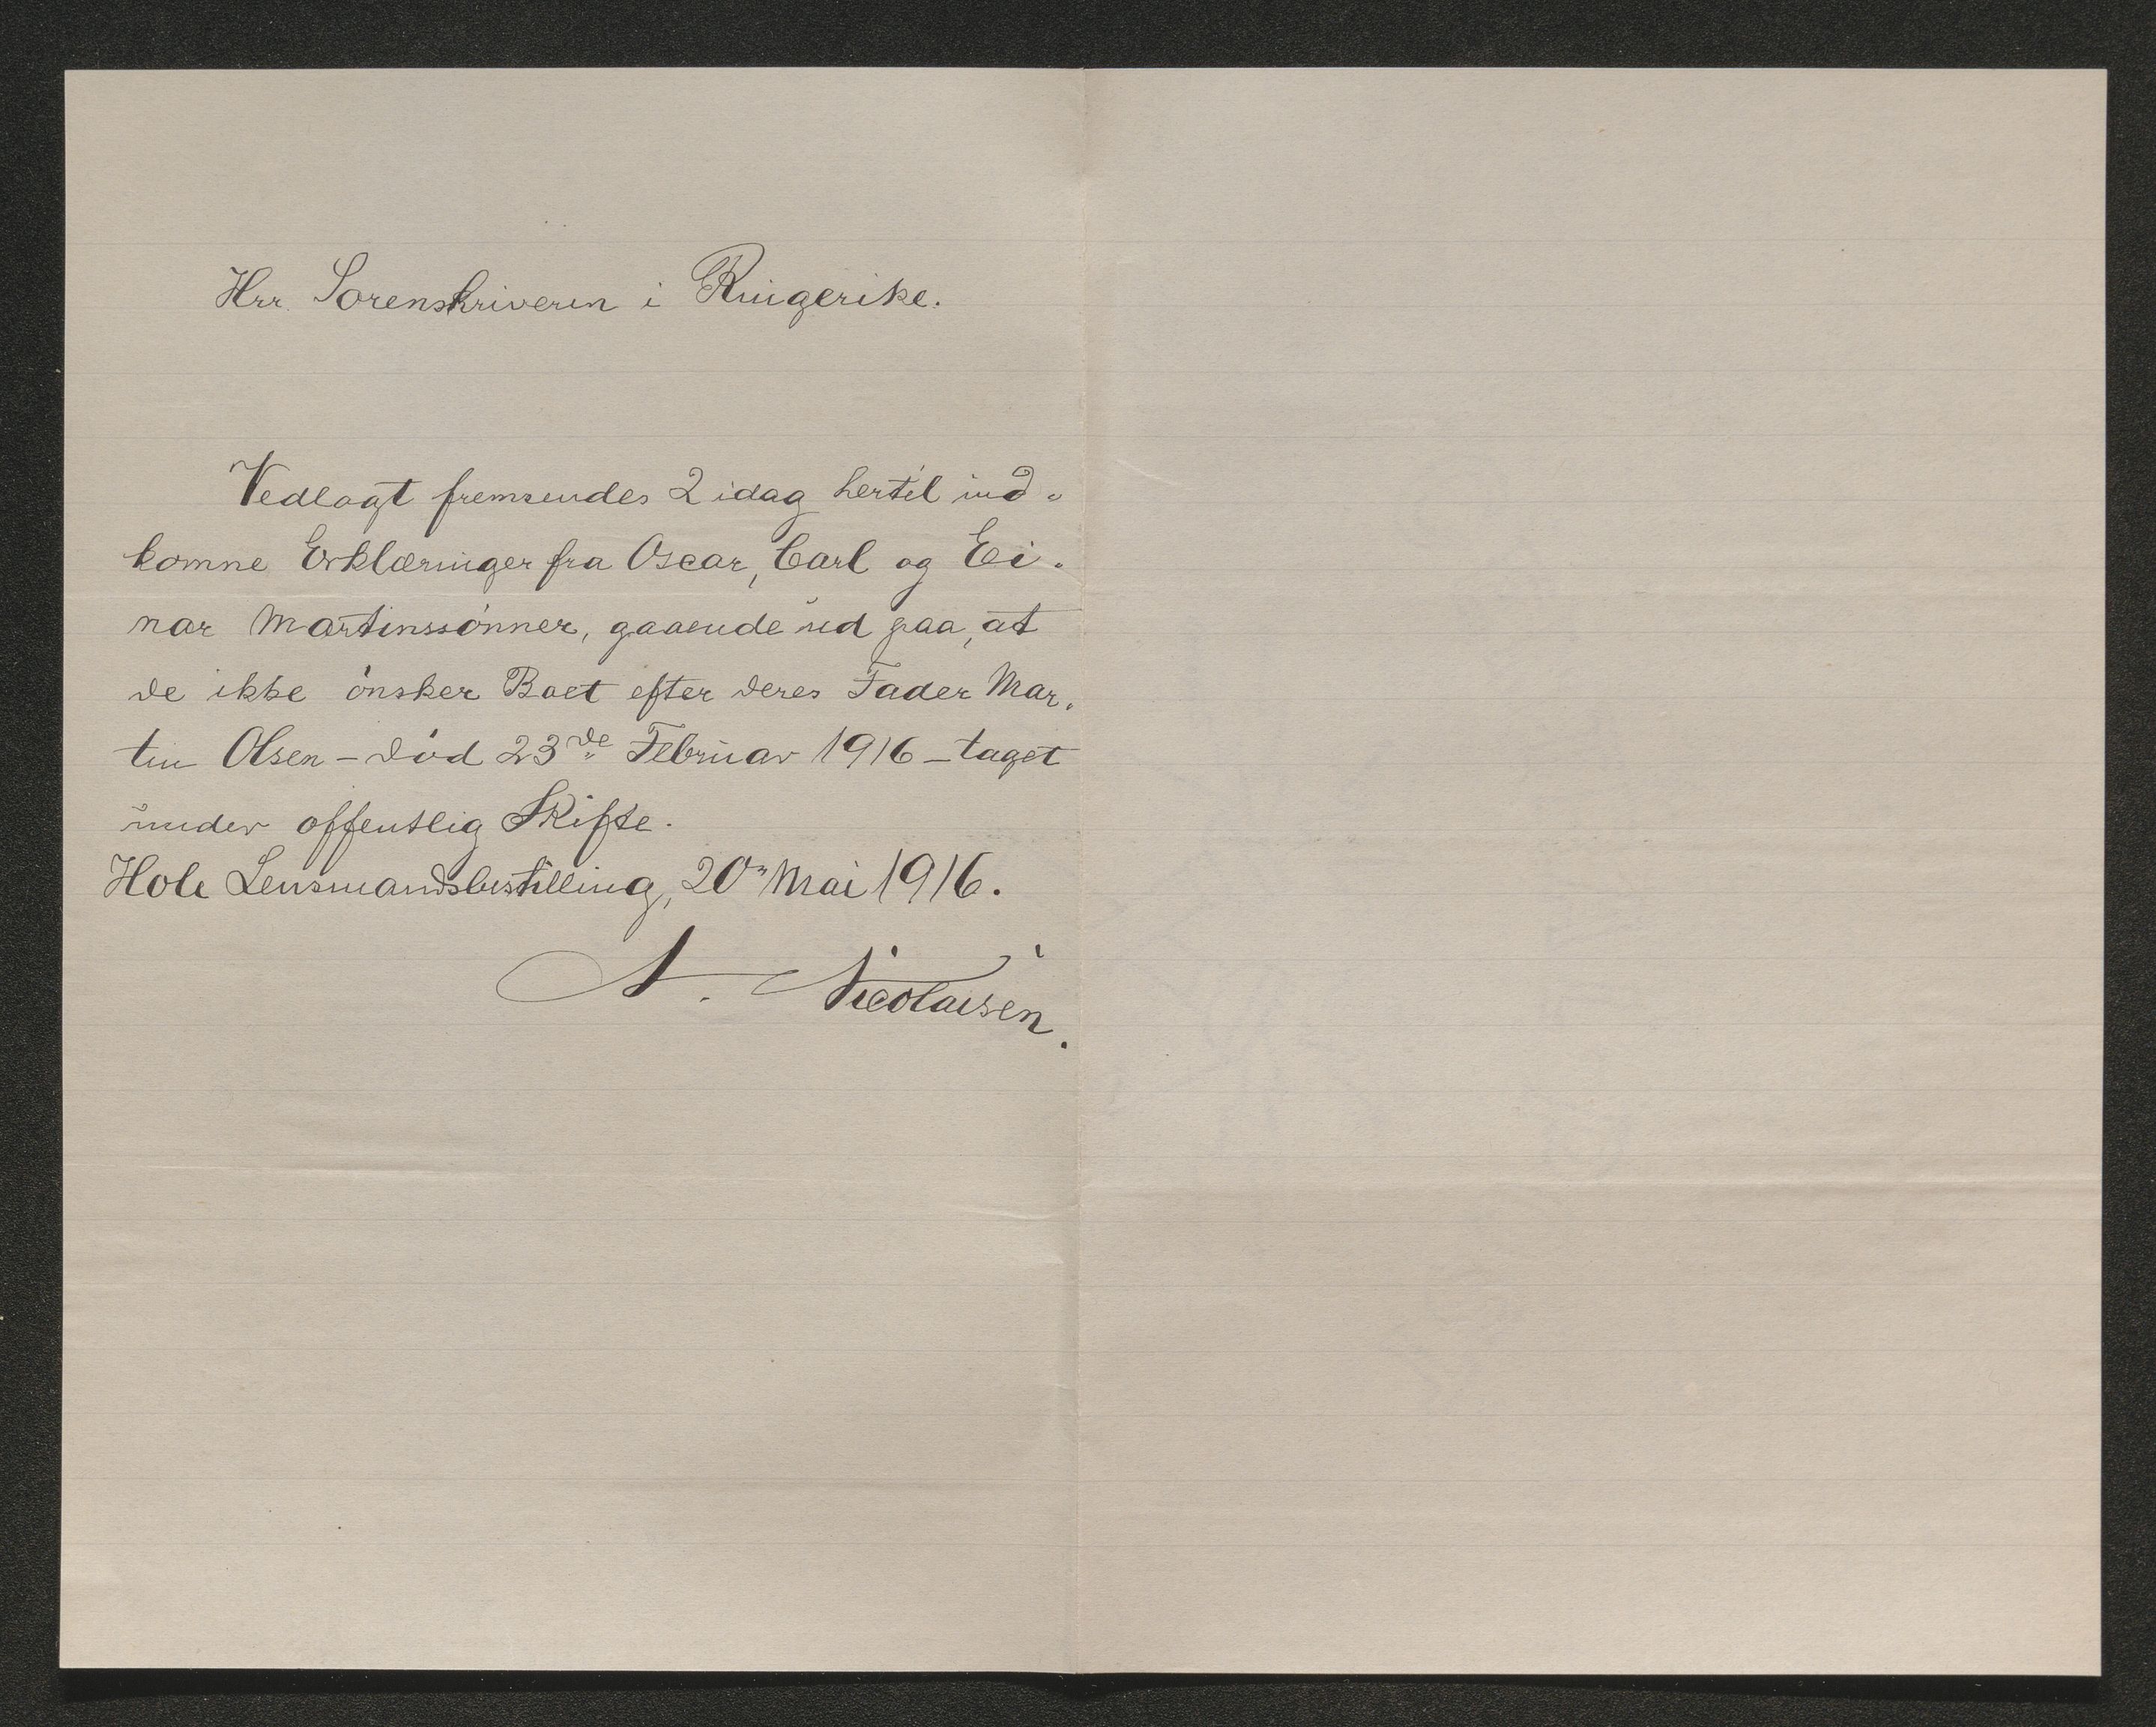 Hrr. Sorenskriveren i Ringerike.
Vedlagt fremsendes 2 idag hertil ind-
komne Erklæringer fra Oscar, Carl og Ei-
nar Martinssønner, gaaende ud paa, at
de ikke ønsker Boet efter deres Fader Mar-
tin Olsen - død 23de Februar 1916 - taget
under offentlig Skifte.
Hole Lensmandsbestilling, 20" Mai 1916.
A. Nicolaisen.